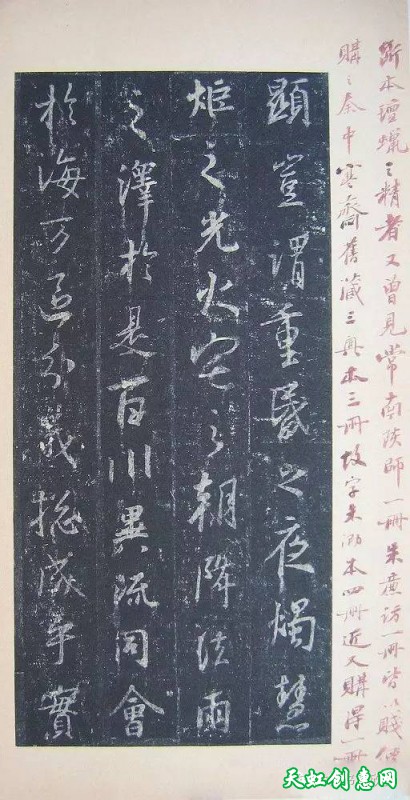 斷本氊蠟之精者又曾見常南陔師一冊朱廉訪一冊皆以賤價
購之秦中寒齋舊藏本三冊故字未泐本四冊近又購得一冊
顯豈謂重昬之夜燭慧
炬之光火宅之朝降法雨
之澤於是百川異流同會
於海万區分義揔成乎實
天虹创惠网